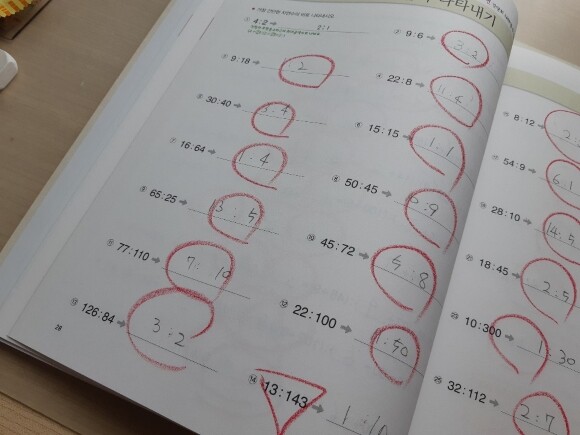 나타내기
① 4:2 → 2:1
② 9:6 → 3:2
③ 9:18 →
④ 22:8 → 11:4
⑤ 30:40 → 3:4
⑥ 15:15 → 1:1
⑦ 16:64 → 1:4
⑧ 50:45 →
⑨ 65:25 → 13:5
⑩ 45:72 → 5:8
⑪ 77:110 → 7:10
⑫ 22:100 →
⑬ 126:84 → 3:2
⑭ 13:143 →
28
8:12 →
54:9 → 6:1
28:10 → 14:5
18:45 → 2:5
10:300 → 1:30
32:112 → 2:7